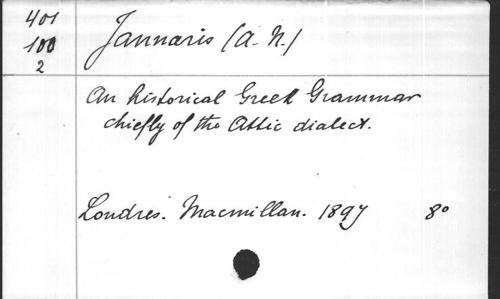 401
100
2
Jannaris (A. N.)
An historical Greek Grammar
chiefly of the Attic dialect.
Londres. Macmillan. 1897 8°